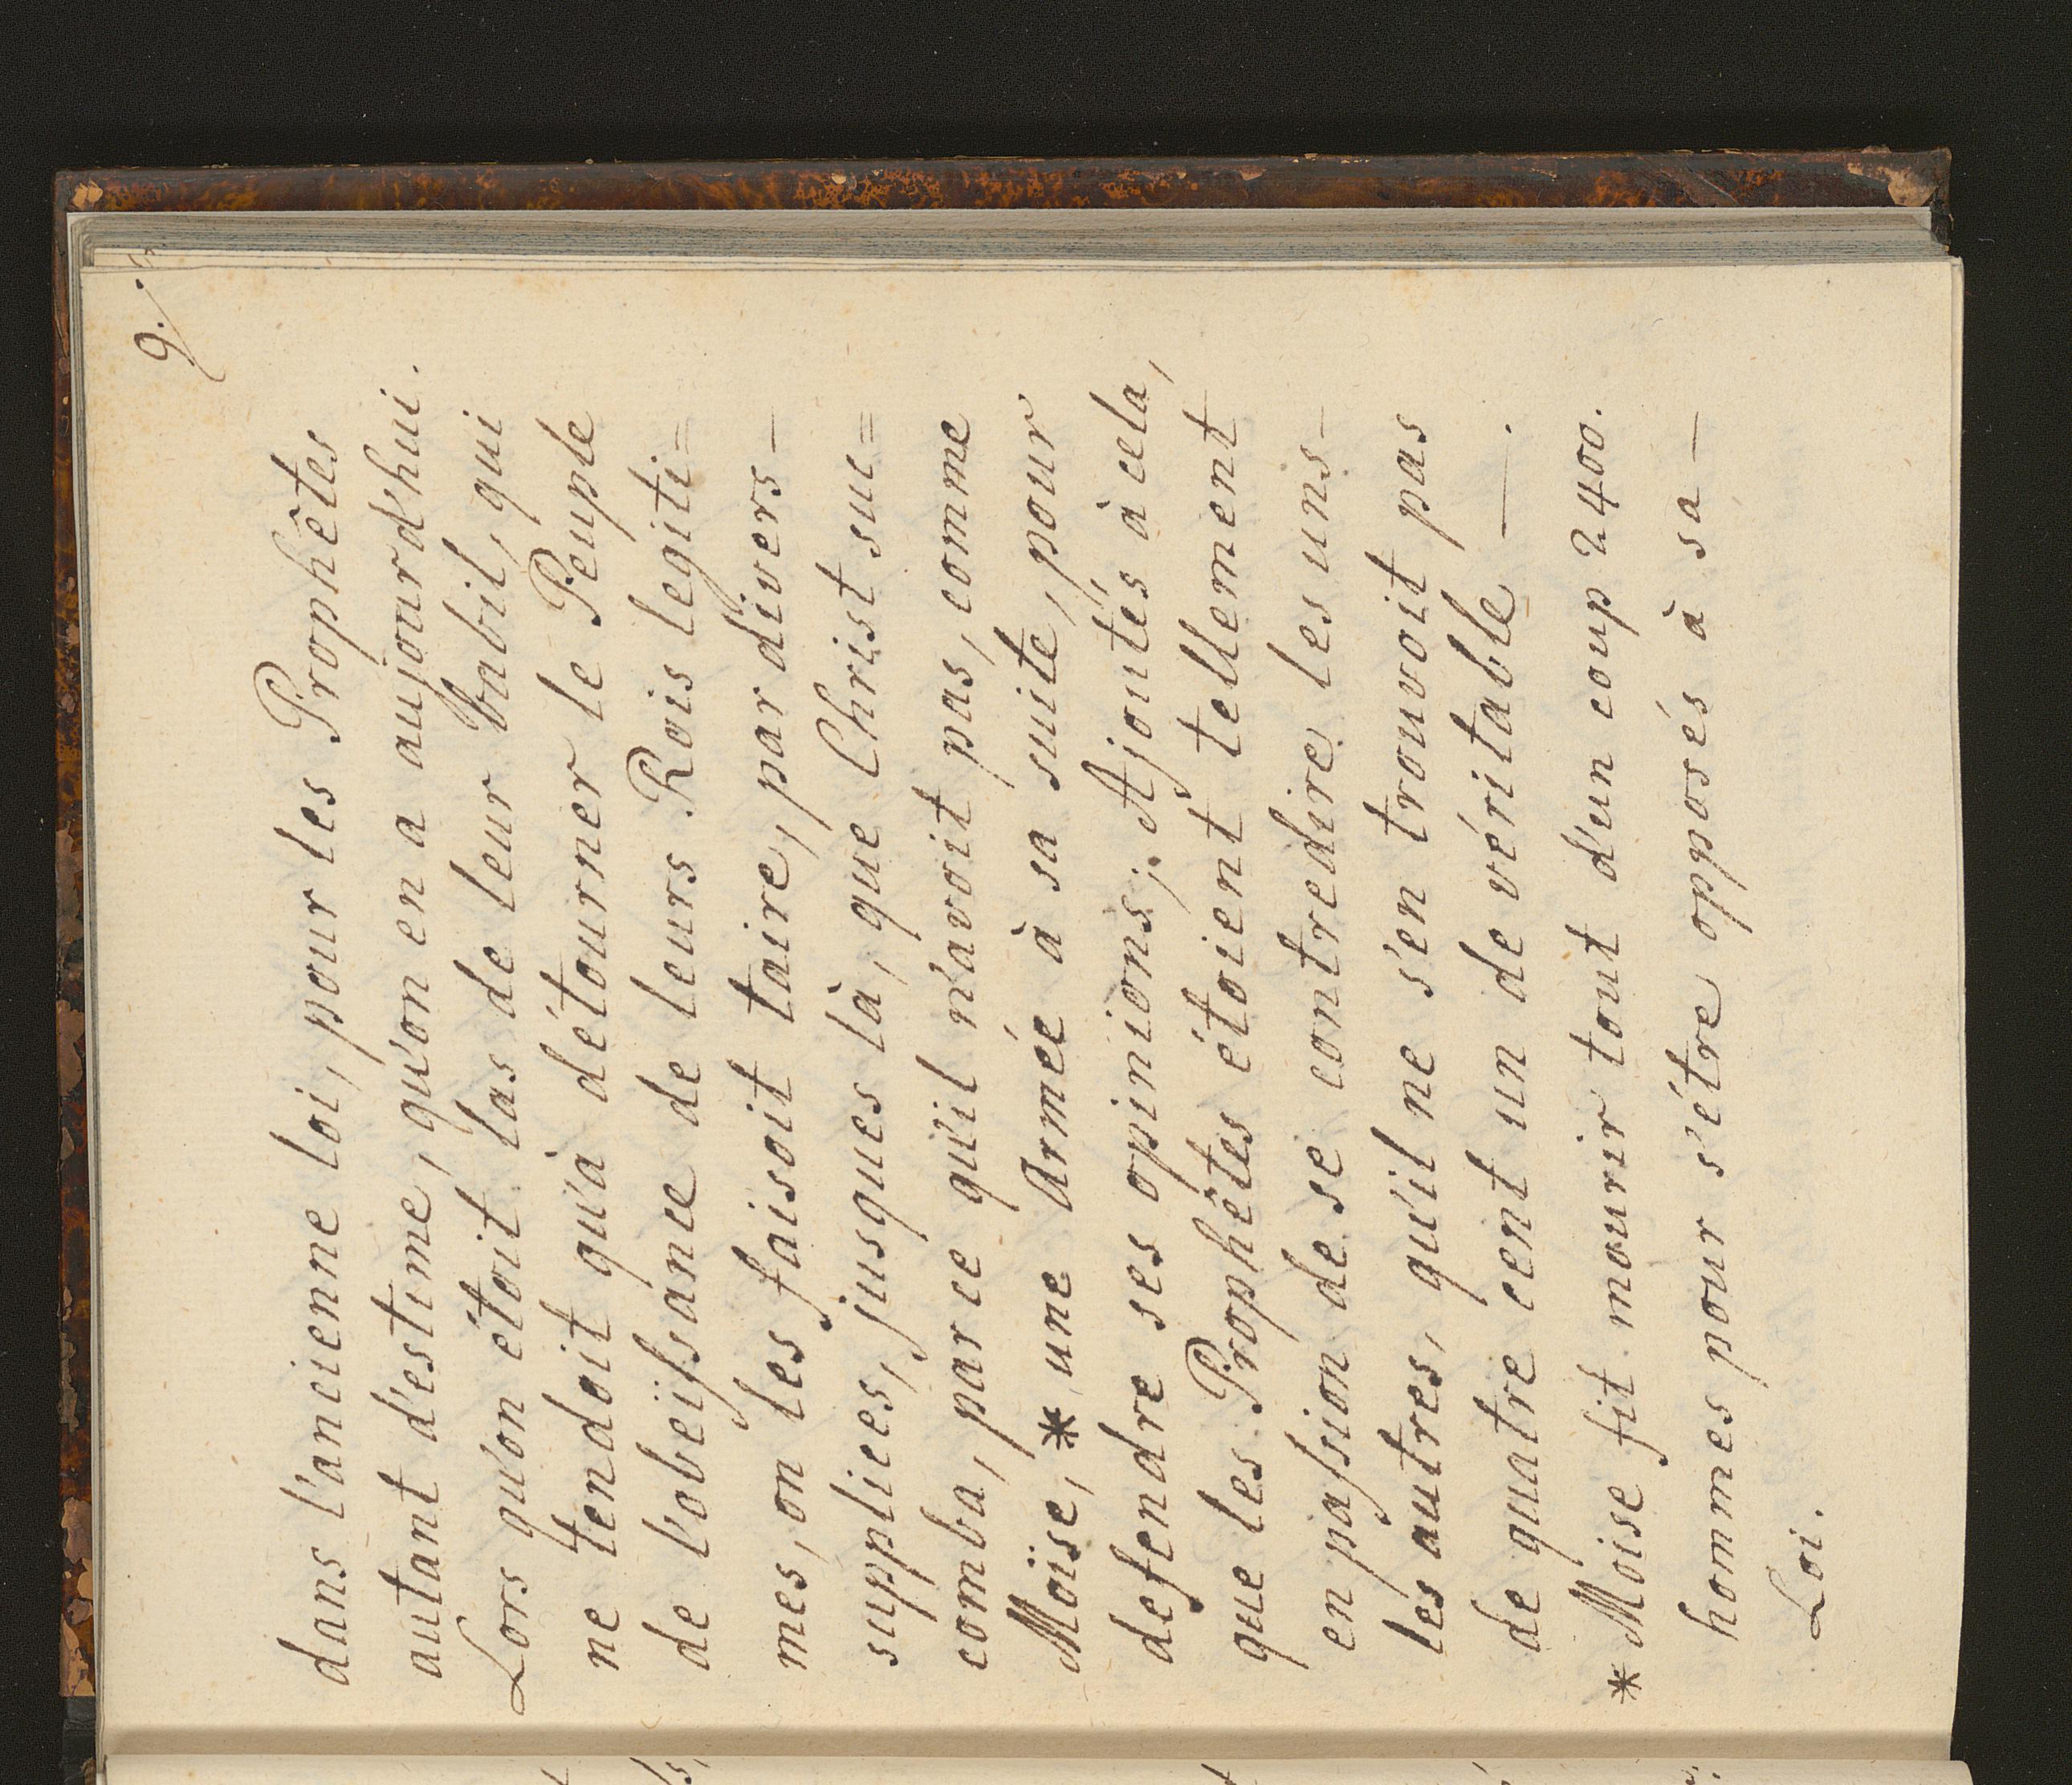 9.
dans l'ancienne loi, pour les Prophètes
autant d'estime, qu'on en a aujourd'hui.
Lors qu'on étoit las de leur babil, qui
ne tendoit qu'à détourner le Peuple
de l'obeïssance de leurs Rois legiti=
mes, on les faisoit taire, par divers-
supplices, jusques là, que Christ suc=
comba, par ce qu'il n'avoit pas, comme
Moïse, * une Armée à sa suite, pour
defendre ses opinions; Ajoutés à cela,
que les Prophètes étoient tellement
en passion de se contredire les uns-
les autres, qu'il ne s'en trouvoit pas
de quatre cent un de véritable —.
* Moise fit mourir tout d'un coup 2400.
hommes pour s'étre opposés à sa -
Loi.